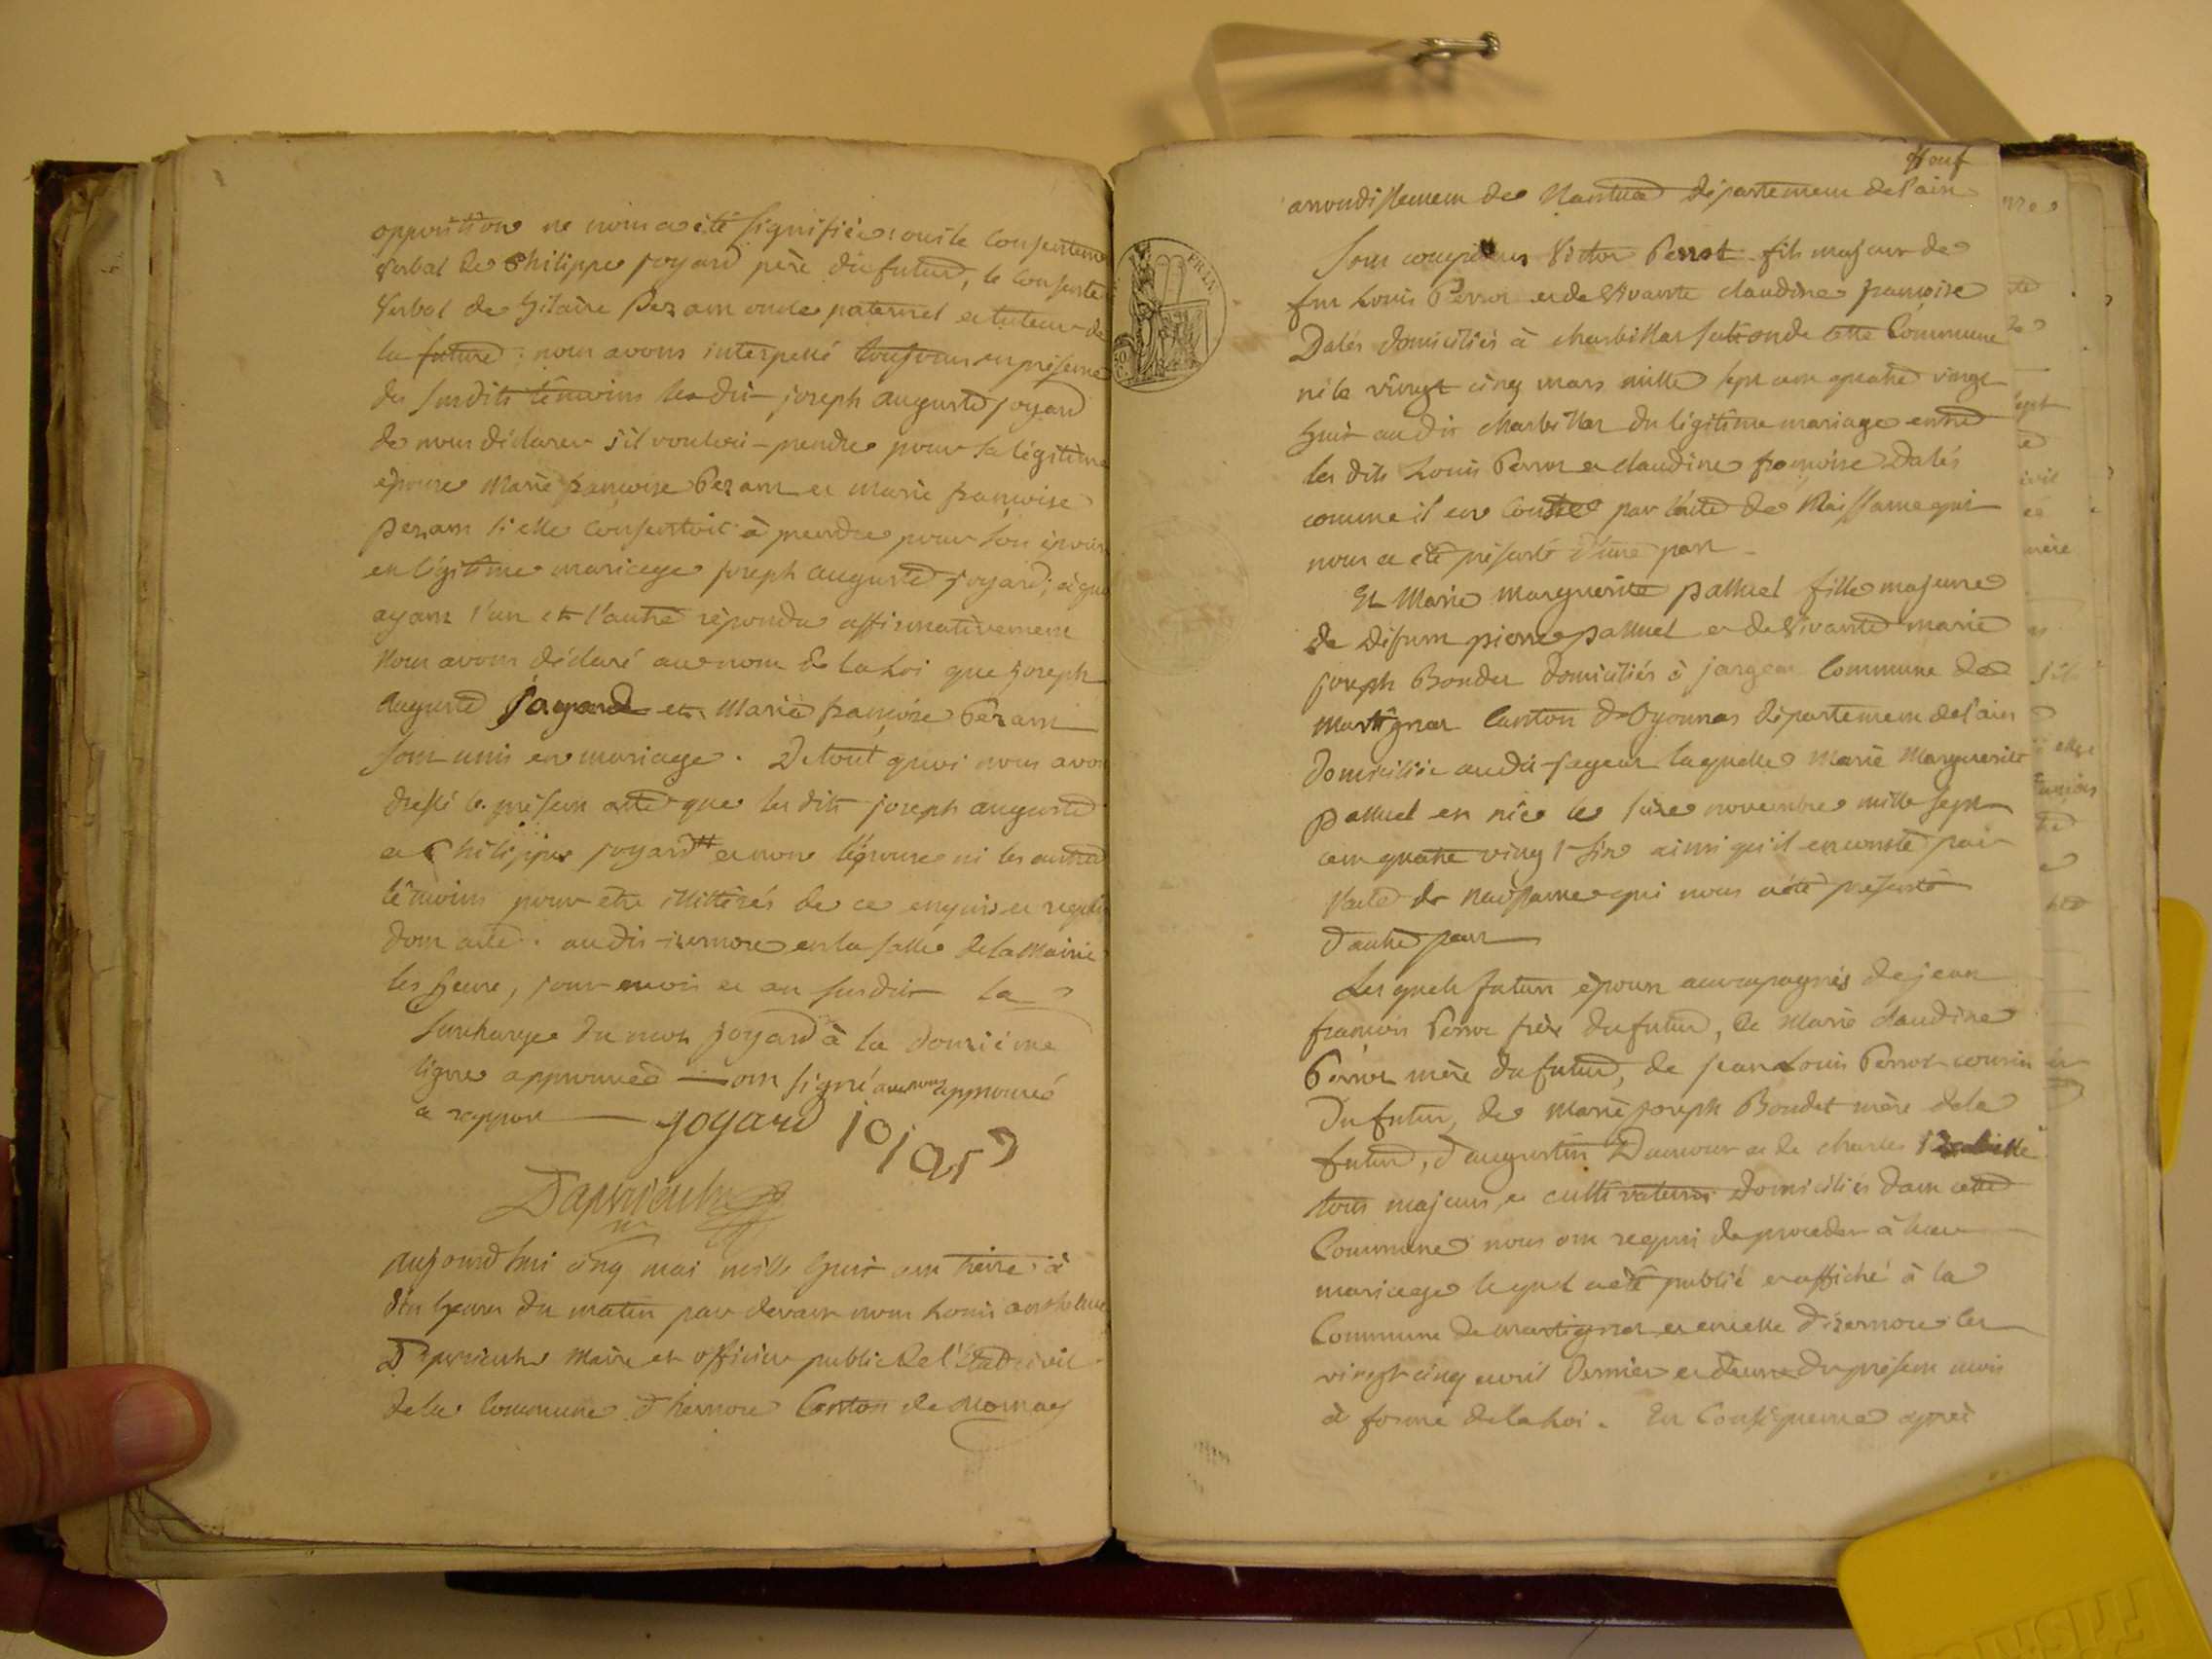 opposition ne nous a été signifiée; ouis le consentem
verbal de Philippe joyard père du futur, le consente
verbal de hilaire Pezam oncle paternel et tuteur de
la future: nous avons interpellé toujours en présence
des susdits témoins le dit joseph auguste joyard
de nous déclarer s'il vouloit prendre pour sa légitime
épouse Marie françoise Pezam et marie françoise
pezam si elle consentoit à prendre pour son époux
en légitime mariage joseph auguste joyard; à quoi
ayant l'un et l'autre répondu affirmativement
Nous avons déclaré au nom de la Loi que joseph
auguste joyard et Marie françoise Pezam
sont unis en mariage. De tout quoi nous avons
dressé le présent acte que les dits joseph auguste
et Philippe joyard # et non l'épouse ni les autres
témoins pour etre illittérés de ce enquis et requis
dont acte. au dit izernore en la salle de la Mairie
les heure, jour mois et an susdits la
surcharge du mot joyard à la douzième
ligne approuvée — # ont signé avec nous approuvé
le rapport — joyard jojard
Dapvrieulx
aujourd'hui cinq mai mille huit cent treize à
dix heures du matin par devant nous Louis anthelme
Dapvrieulx Maire et officier public de l'état civil
de la Commune d'hernore Canton de Nornay
#ouf
arrondissement de Nantua département de l'ain
Sont comparus Victor Perrot fils majeur de
feu Louis Perrot et de vivante claudine françoise
Dalés domiciliés à charbillat section de cette Commune
né le vingt cinq mars mille sept cent quatre vingt
huit au dit charbillat du légitime mariage entre
les dits Louis Perrot et claudine françoise Dalés
comme il en conste par l'acte de Naissance qui
nous a été présenté d'une part
Et Marie Marguerite palluel fille majeure
de défunt pierre palluel et de vivante marie
joseph Boudet domiciliés à jargeat Commune de
martignat Canton d'Oyonnas département de l'ain
domiciliée au dit jageat laquelle Marie Marguerite
palluel est née le seize novembre mille sept
cent quatre vingt six ainsi qu'il en conste par
l'acte de naissance qui nous a été présenté
d'autre part
Lesquels futurs époux accompagnés de jean
françois Perrot frère du futur, de Marie claudine
Perrot mère du futur, de jean Louis Perrot cousin
du futur, de Marie joseph Boudet mère de la
future, d'augustin Damour et de charles
tous majeurs et cultivateurs domiciliés dans cette
Commune nous ont requis de procéder à leur
mariage lequel a été publié et affiché à la
Commune de martignat et en celle d'izernore les
vingt cinq avril dernier et deux du présent mois
à forme de la Loi. En Conséquence après